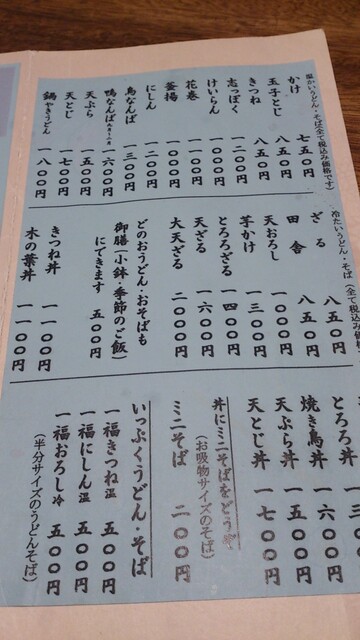 温かいうどん・そば(全て税込み価格です)
かけ 七五〇円
玉子とじ 八五〇円
きつね 八五〇円
志っぽく 一二〇〇円
けいらん 一〇〇〇円
花巻 一一〇〇円
釜揚 一〇〇〇円
にしん 一二〇〇円
鳥なんば 一三〇〇円
鴨なんば 一六〇〇円
天ぷら 一五〇〇円
天とじ 一七〇〇円
鍋やきうどん 一八〇〇円
冷たいうどん・そば(全て税込み価格
ざる 八五〇円
田舎 八五〇円
天おろし 一〇〇〇円
芋かけ 一三〇〇円
とろろざる 一四〇〇円
天ざる 一六〇〇円
大天ざる 二〇〇〇円
どのおうどん・おそばも
御膳(小鉢・季節のご飯)
にできます 五〇〇円
きつね丼 一一〇〇円
木の葉丼 一一〇〇円
とろろ丼 一三
焼き鳥丼 一六〇〇円
天ぷら丼 一五〇〇円
天とじ丼 一七〇〇円
丼にミニそばをどうぞ
(お吸物サイズのそば)
ミニそば 二〇〇円
いっぷくうどん・そば
一福きつね温 五〇〇円
一福にしん温 五〇〇円
一福おろし冷 五〇〇円
(半分サイズのうどんそば)